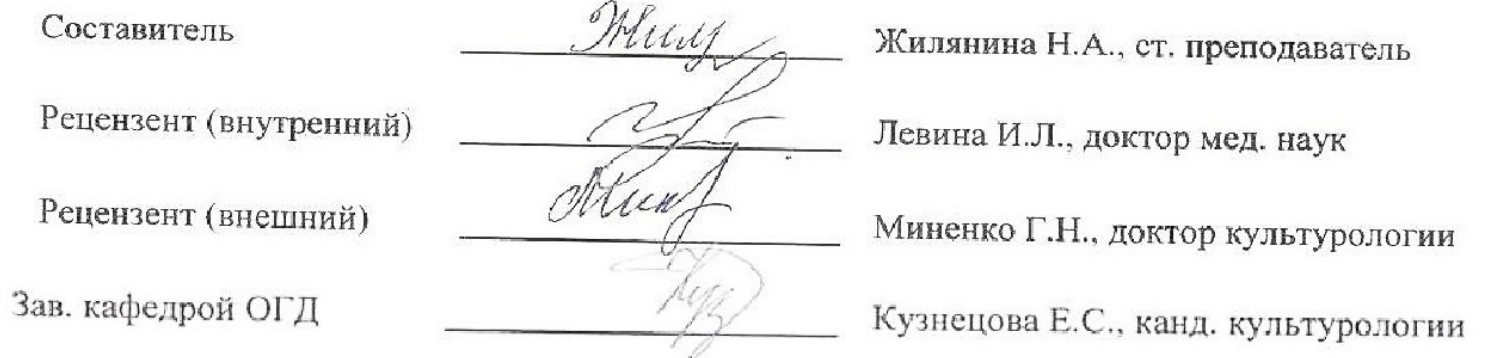 Составитель Жилянина Н.А., ст. преподаватель
Рецензент (внутренний) Левина И.Л., доктор мед. наук
Рецензент (внешний) Миненко Г.Н., доктор культурологии
Зав. кафедрой ОГД Кузнецова Е.С., канд. культурологии